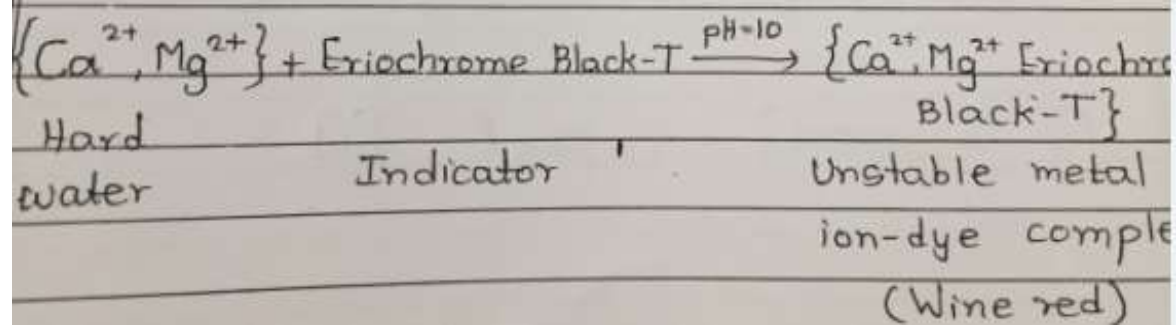 {Ca²⁺, Mg²⁺} + Eriochrome Black-T pH-10 → {Ca²⁺, Mg²⁺ Eriochro
Black-T}
Hard
water Indicator Unstable metal
ion-dye comple
(Wine red)